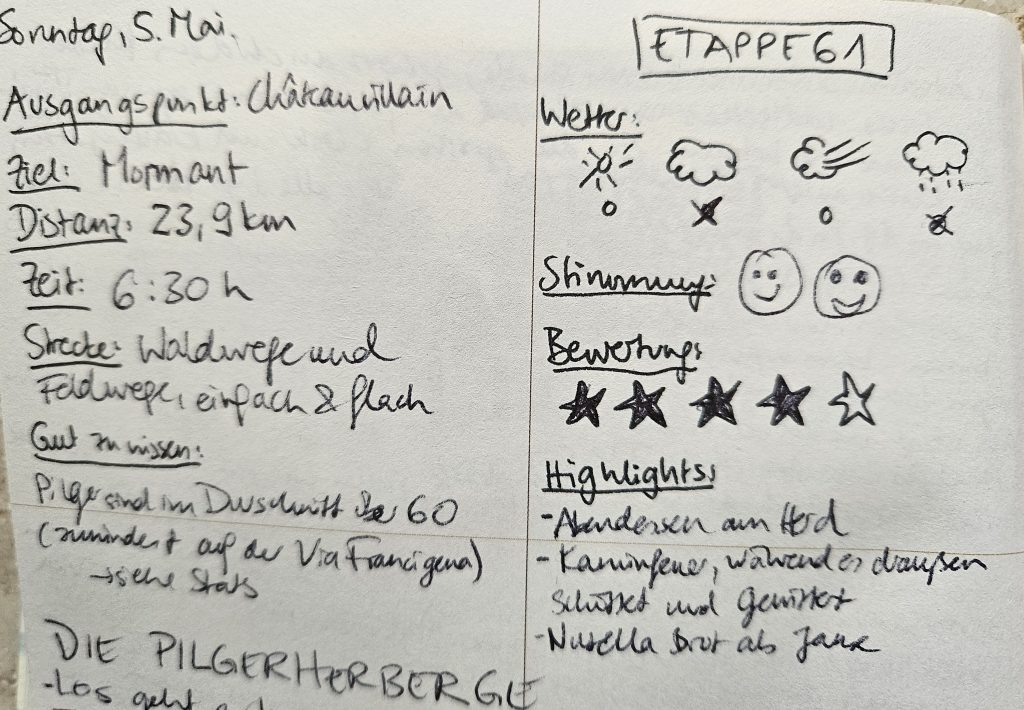 Sonntag, 5. Mai.
Ausgangspunkt: Châteauvillain
Ziel: Mormant
Distanz: 23,9 km
Zeit: 6:30 h
Strecke: Waldwege und
Feldwege, einfach & flach
Gut zu wissen:
Pilger sind im Durschnitt 60
(zumindest auf der Via Francigena)
→ siehe Stats
DIE PILGERHERBERGE
- Los geht
ETAPPE 61
Wetter:
Stimmung:
Bewertung:
Highlights:
- Abendessen am Herd
- Kaminfeuer, während es draußen
schüttet und gewittert
- Nutella Brot als Jause